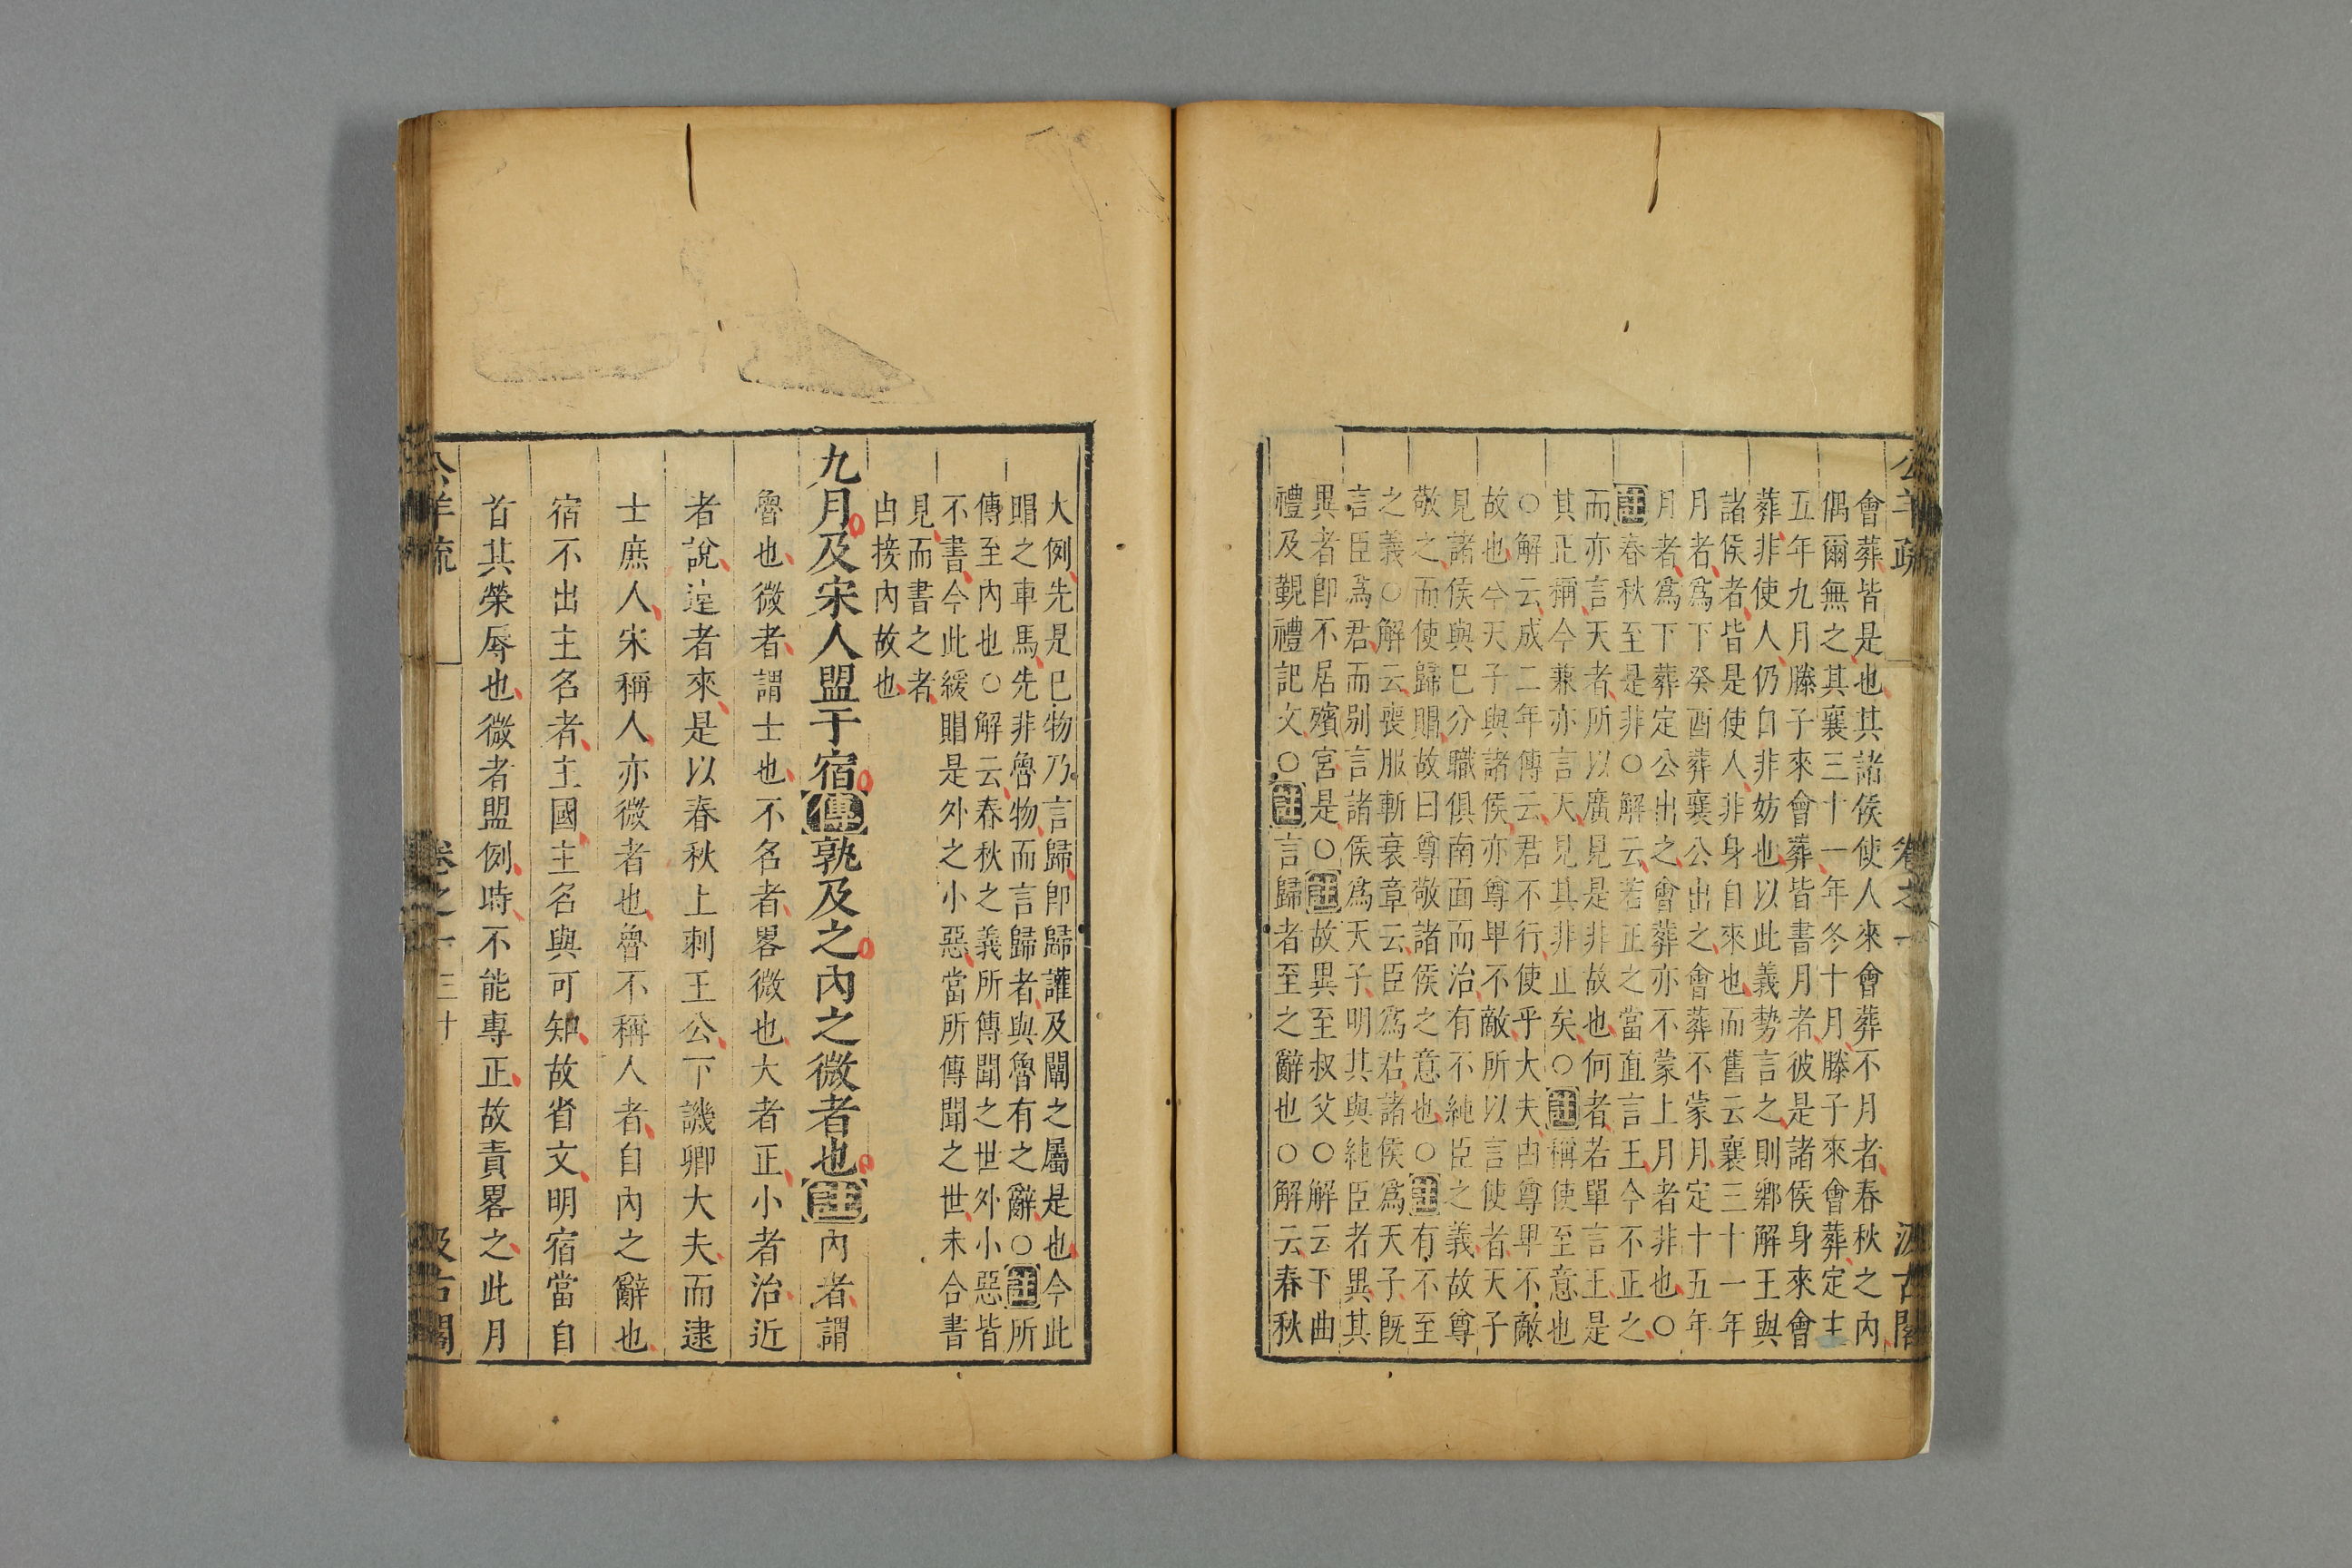 公羊疏 卷之一 汲古閣
會葬皆是也其諸侯使人來會葬不月者春秋之內
偶爾無之其襄三十一年冬十月滕子來會葬定
五年九月滕子來會葬皆書月者彼是諸侯身來會
葬非使人仍自非妨也以此義勢言之則鄉解王與
諸侯者皆是使人非身自來也而舊云襄三十一年
月者爲下癸酉葬襄公出之會葬不蒙月定十五年
月者爲下葬定公出之會葬亦不蒙上月者非也○
註春秋至是非○解云若正之當直言王今不正之
而亦言天者所以廣見是非故也何者若單言王是
其正稱今兼亦言天見其非正矣○註稱使至意也
○解云成二年傳云君不行使乎大夫由尊卑不敵
故也今天子與諸侯亦尊卑不敵所以言使者天子
見諸侯與巳分職俱南面而治有不純臣之義故尊
敬之而使歸賵故曰尊敬諸侯之意也○註有不至
之義○解云喪服斬衰章云臣爲君諸侯爲天子旣
言臣爲君而別言諸侯爲天子明其與純臣者異其
異者卽不居殯宮是○註故異至叔父○解云下曲
禮及覲禮記文○註言歸者至之辭也○解云春秋
大例先是巳物乃言歸卽歸讙及闡之屬是也今此
賵之車馬先非魯物而言歸者與魯有之辭○註所
傳至內也○解云春秋之義所傳聞之世外小惡皆
不書今此緩賵是外之小惡當所傳聞之世未合書
見而書之者
由接內故也
九月及宋人盟于宿傳孰及之內之微者也註內者謂
魯也微者謂士也不名者畧微也大者正小者治近
者說遠者來是以春秋上刺王公下譏卿大夫而逮
士庶人宋稱人亦微者也魯不稱人者自內之辭也
宿不出主名者主國主名與可知故省文明宿當自
首其榮辱也微者盟例時不能專正故責畧之此月
公羊疏 卷之一 三十 汲古閣